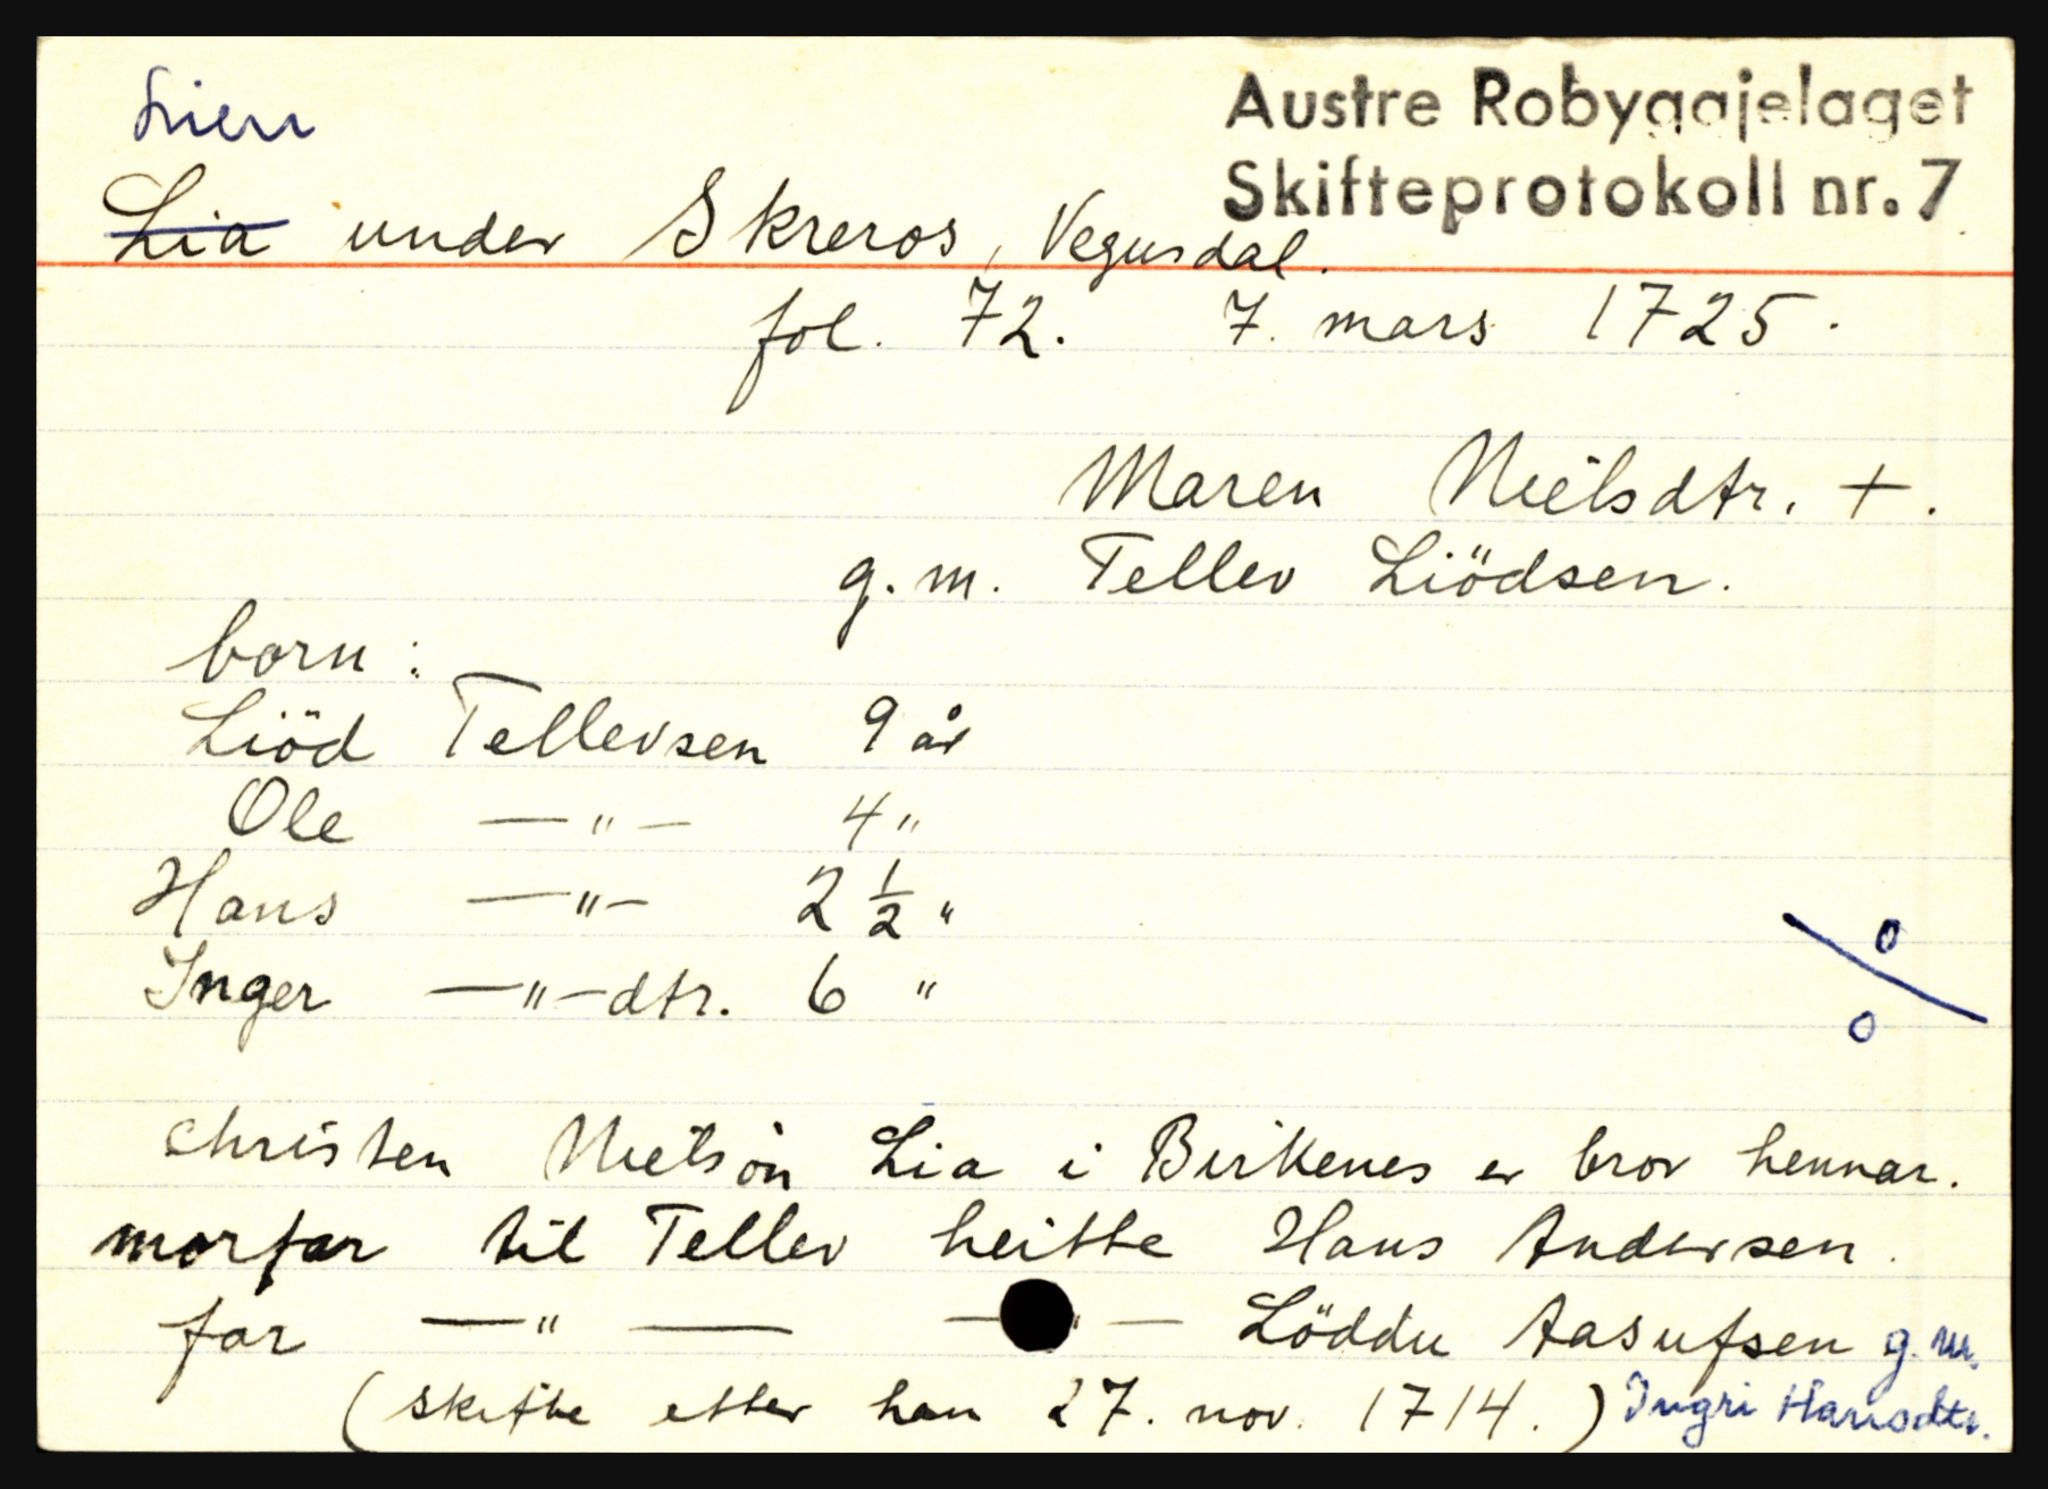 Lien
Austre Robyggjelaget
Skifteprotokoll nr. 7
Lia under Skreros, Vegusdal.
fol. 72. 7. mars 1725.
Maren Nielsdtr. +.
g. m. Tellev Liödsen.
born:
Liöd Tellevsen 9 år
Ole —"— 4 "
Hans —"— 2 1/2 "
Inger —"—dtr. 6 "
Christen Nielsön Lia i Birkenes er bror hennar.
morfar til Tellev heitte Hans Andersen.
far —"— —"— Löddu Aasufsen g. m.
(skifte etter han 27. nov. 1714.) Ingri Hansdtr.